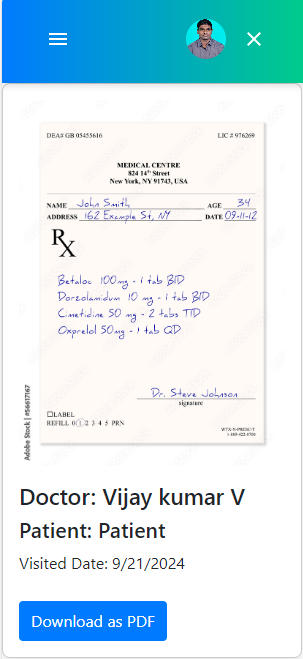 DEA# GB 05455616 LIC # 976269
MEDICAL CENTRE
824 14th Street
New York, NY 91743, USA
NAME John Smith AGE 34
ADDRESS 162 Example St, NY DATE 09-11-12
Rx
Betaloc 100mg - 1 tab BID
Dorzolamidum 10 mg - 1 tab BID
Cimetidine 50 mg - 2 tabs TID
Oxprelol 50mg - 1 tab QD
Dr. Steve Johnson
signature
☐LABEL
REFILL 0 1 2 3 4 5 PRN
Adobe Stock | #56617167
Doctor: Vijay kumar V
Patient: Patient
Visited Date: 9/21/2024
Download as PDF